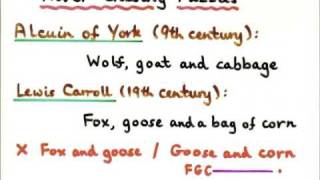 Alcuin of York (9th century):
Wolf, goat and cabbage
Lewis Carroll (19th century):
Fox, goose and a bag of corn
× Fox and goose / Goose and corn
FGC